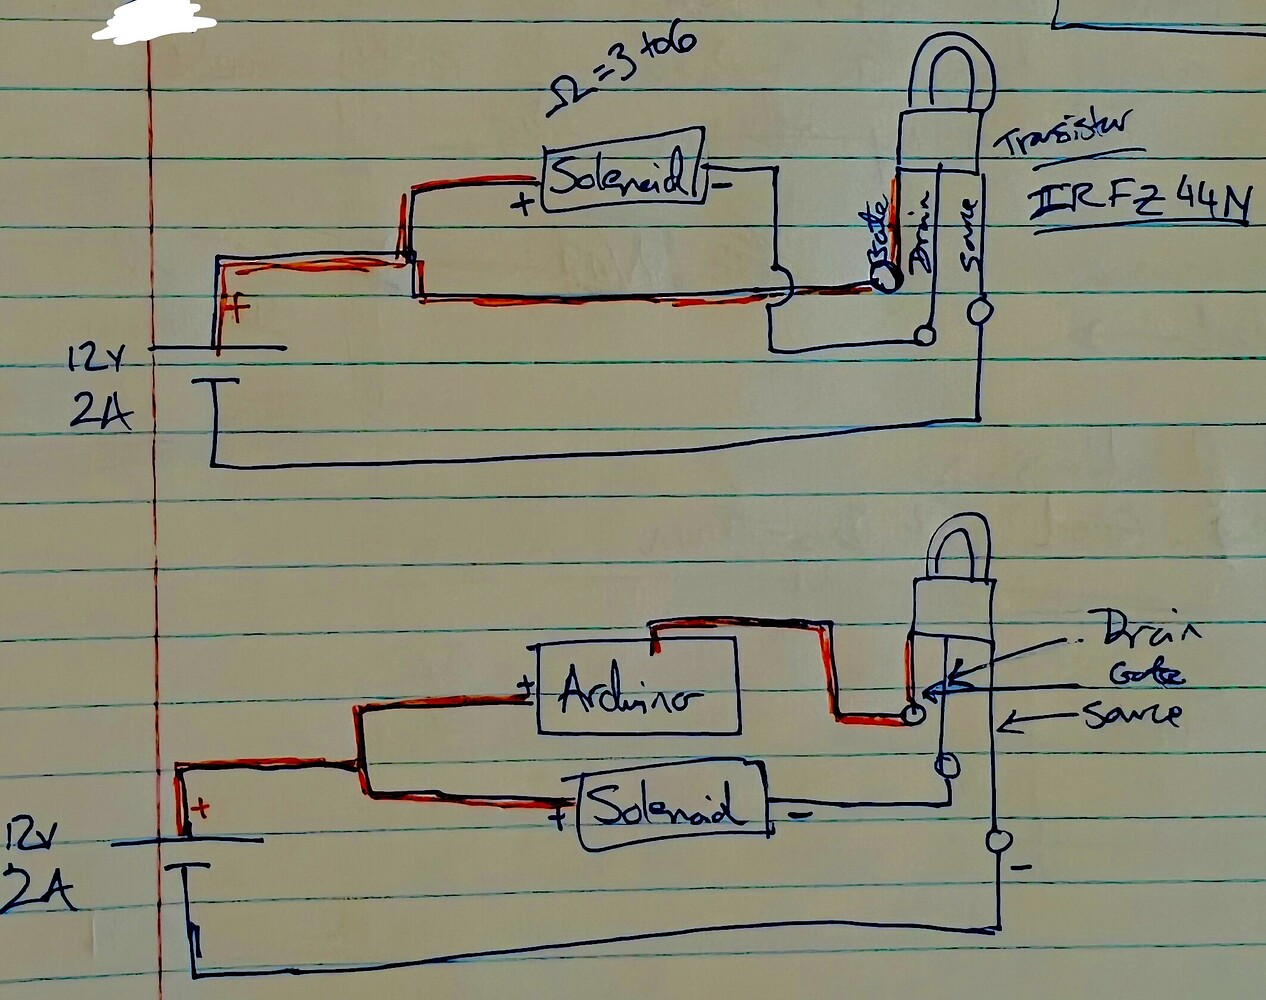 Ω = 3 to 6
Transistor
IRFZ44N
Solenoid
+
-
Gate
Drain
Source
+
12v
2A
Drain
Gate
Source
+
Arduino
+
Solenoid
-
+
12v
2A
-